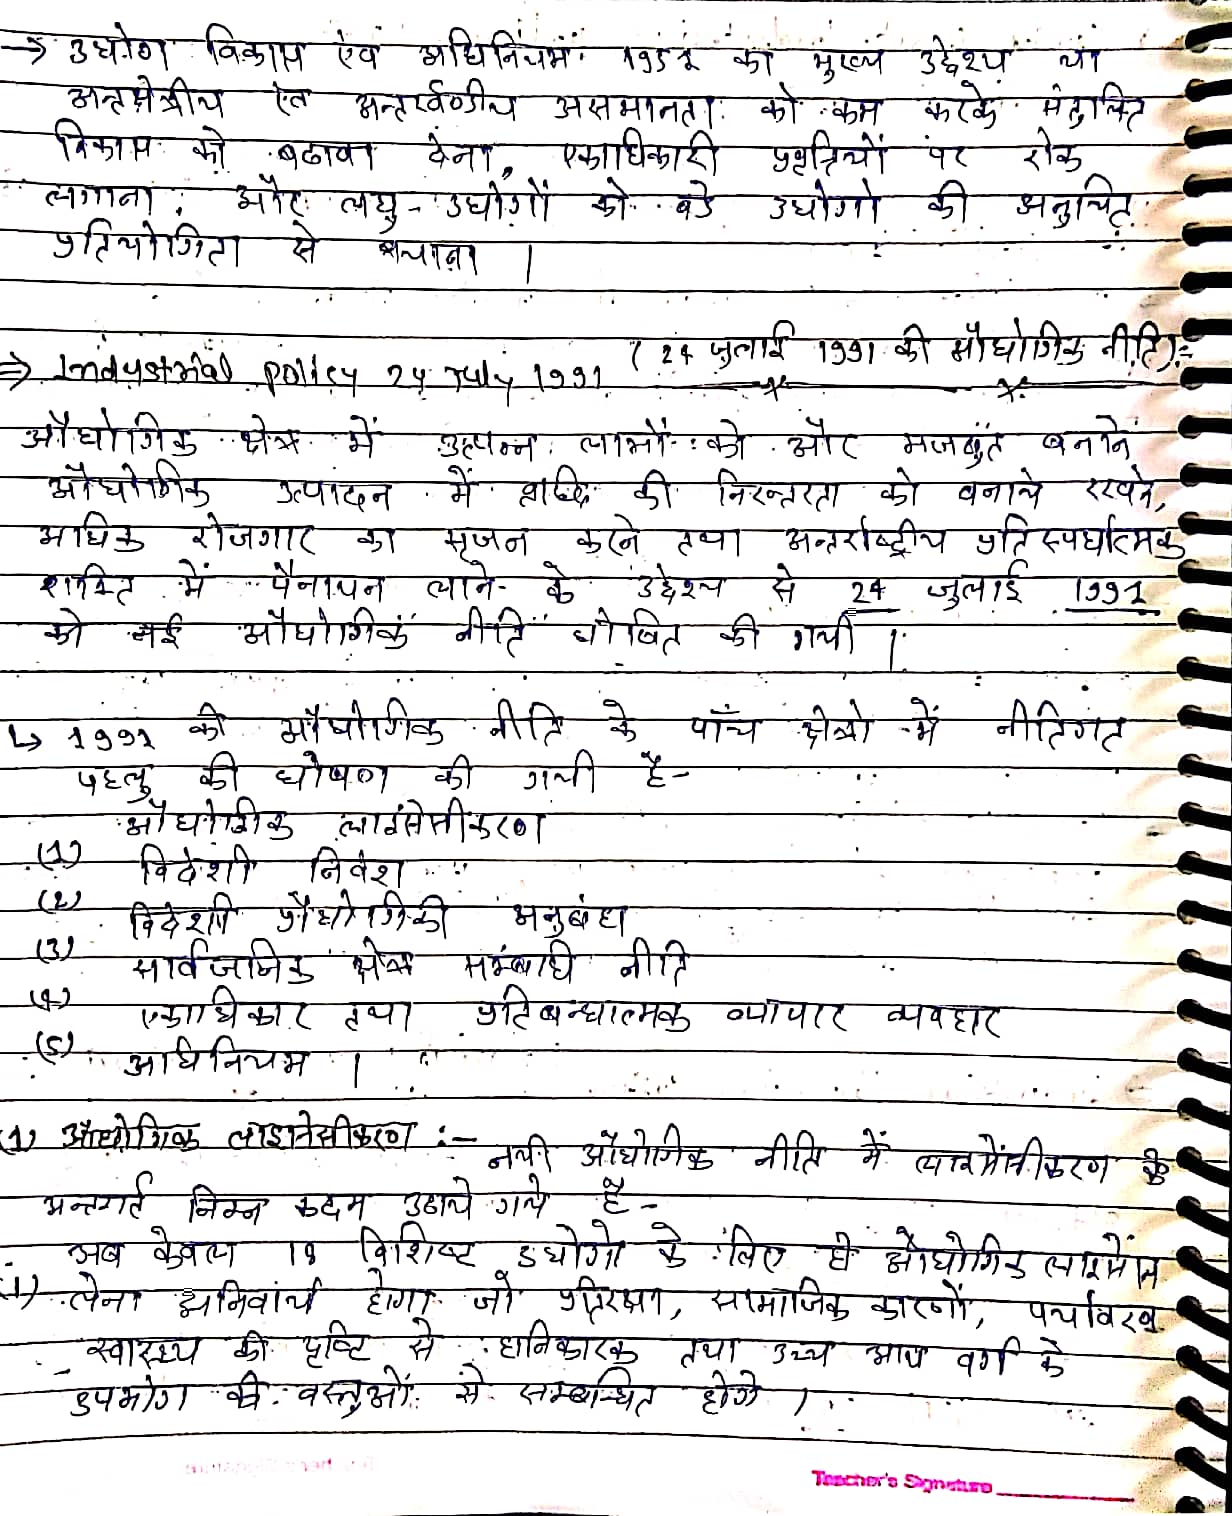 → उद्योग विकास एंव अधिनियम 1951 का मुख्य उद्देश्य था
अन्तक्षेत्रीय एंव अन्तर्वर्गीय असमानता को कम करके संतुलित
विकास को बढावा देना, एकाधिकारी प्रवृत्तियों पर रोक
लगाना, और लघु-उद्योगों को बडे उद्योगो की अनुचित
प्रतियोगिता से बचाना |
⇒ Industrial policy 24 July 1991 (24 जुलाई 1991 की औद्योगिक नीति):-
औद्योगिक क्षेत्र में उत्पन्न लाभों को और मजबुत बनाने
औद्योगिक उत्पादन में वृद्धि की निरन्तरता को बनाये रखने,
अधिक रोजगार का सृजन करने तथा अन्तर्राष्ट्रीय प्रतिस्पर्धात्मक
शक्ति में पैनापन लाने के उद्देश्य से 24 जुलाई 1991
को नई औद्योगिक नीति घोषित की गयी |
↳ 1991 की औद्योगिक नीति के पाँच क्षेत्रो में नीतिगत
पहलु की घोषणा की गयी है-
(1) औद्योगिक लाइसेंसीकरण
(2) विदेशी निवेश
(3) विदेशी प्रौद्योगिकी अनुबंध
(4) सार्वजनिक क्षेत्र सम्बंधि नीति
(5) एकाधिकार तथा प्रतिबन्धात्मक व्यापार व्यवहार
अधिनियम |
(1) औद्योगिक लाइसेंसीकरण :- नयी औद्योगिक नीति में लाइसेंसीकरण के
अन्तगर्त निम्न कदम उठाये गये है-
(1) अब केवल 18 विशिष्ट उद्योगो के लिए ही औद्योगिक लाइसेंस
लेना अनिवार्य होगा जो प्रतिरक्षा, सामाजिक कारणों, पर्यावरण
स्वास्थ्य की दृष्टि से हानिकारक तथा उच्च आय वर्ग के
उपभोग की वस्तुओं से सम्बन्धित होगे |
Teacher's Signature